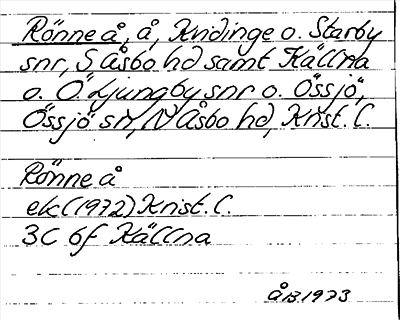 Rönne å, å, Kvidinge o. Starby
snr, S Åsbo hd samt Källna
o. Ö Ljungby snr o. Össjö,
Össjö sn, N Åsbo hd, Krist. l.
Rönne å
ek (1972) Krist. l.
3C 6f Källna
ÅB 1973